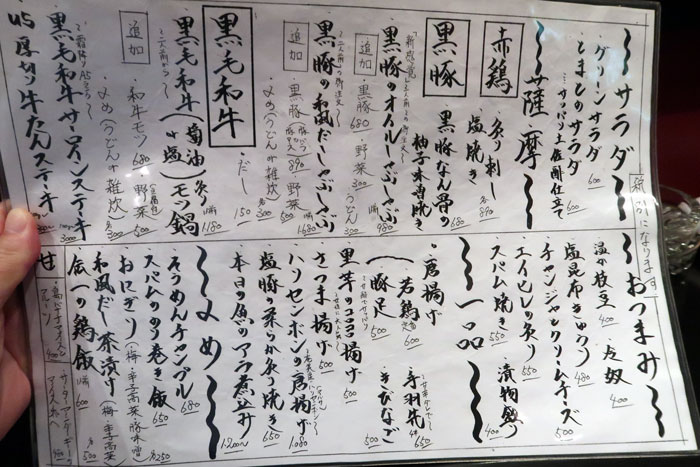 税別になります
〜サラダ〜
・グリーンサラダ 600
・とまとのサラダ 600
・サッパリ土佐酢仕立て
〜薩摩〜
赤鶏
・炙り刺し
・塩焼き
各890
黒豚
・黒豚なん骨の
柚子味噌焼き 680
新感覚
・黒豚のオイルしゃぶしゃぶ 980
追加
・黒豚 680
・野菜 300
・うどん 300
・黒豚の和風だしゃぶしゃぶ 1,680
追加
・黒豚 890
・野菜 500
・〆め(うどんor雑炊) 各300
・だし 150
黒毛和牛
・黒毛和牛(醤油or塩)モツ鍋 1,180
・二人前から〜
追加
・和牛モツ 680
・野菜 500
・〆め(うどんor雑炊) 各300
・黒毛和牛サーロインステーキ 3000
・US厚切り牛たんステーキ
〜おつまみ〜
・温か枝豆 400
・冷奴 400
・塩昆布きゅうり 480
・チャンジャとクリームチーズ 500
・エイヒレの炙り 550
・スパム焼き 550
・漬物盛り 400
〜一品〜
・唐揚げ
・若鶏 600
・手羽先 650
・豚足 500
・きびなご 500
・里芋のコロコロ揚げ 500
・さつま揚げ 600
・ハリセンボンの唐揚げ 1,080
・塩豚の柔らか炙り焼き 650
・本日の魚のアラ煮立て 1200〜
〜〆め〜
・そうめんチャンプル 680
・スパムのり巻き飯 650
・おにぎり(梅・辛子高菜・豚味噌) 各250
・和風だし茶漬け(梅・辛子高菜) 各500
・伝一の鶏飯 600
甘
400
・サーターアンダギー